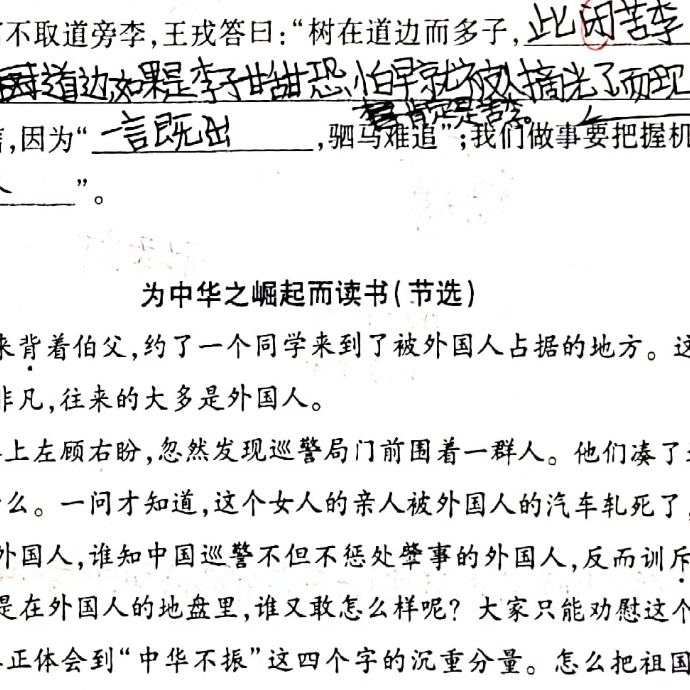 不取道旁李，王戎答曰：“树在道边而多子，此闭苦李
道边如果是李子甘甜恐怕早就被人摘光了而现
肯定是苦李。
，因为“言既出，驷马难追”；我们做事要把握机
”。
为中华之崛起而读书（节选）
来背着伯父，约了一个同学来到了被外国人占据的地方。这
非凡，往来的大多是外国人。
上左顾右盼，忽然发现巡警局门前围着一群人。他们凑了
什么。一问才知道，这个女人的亲人被外国人的汽车轧死了，
外国人，谁知中国巡警不但不惩处肇事的外国人，反而训斥
是在外国人的地盘里，谁又敢怎么样呢？大家只能劝慰这个
正体会到“中华不振”这四个字的沉重分量。怎么把祖国